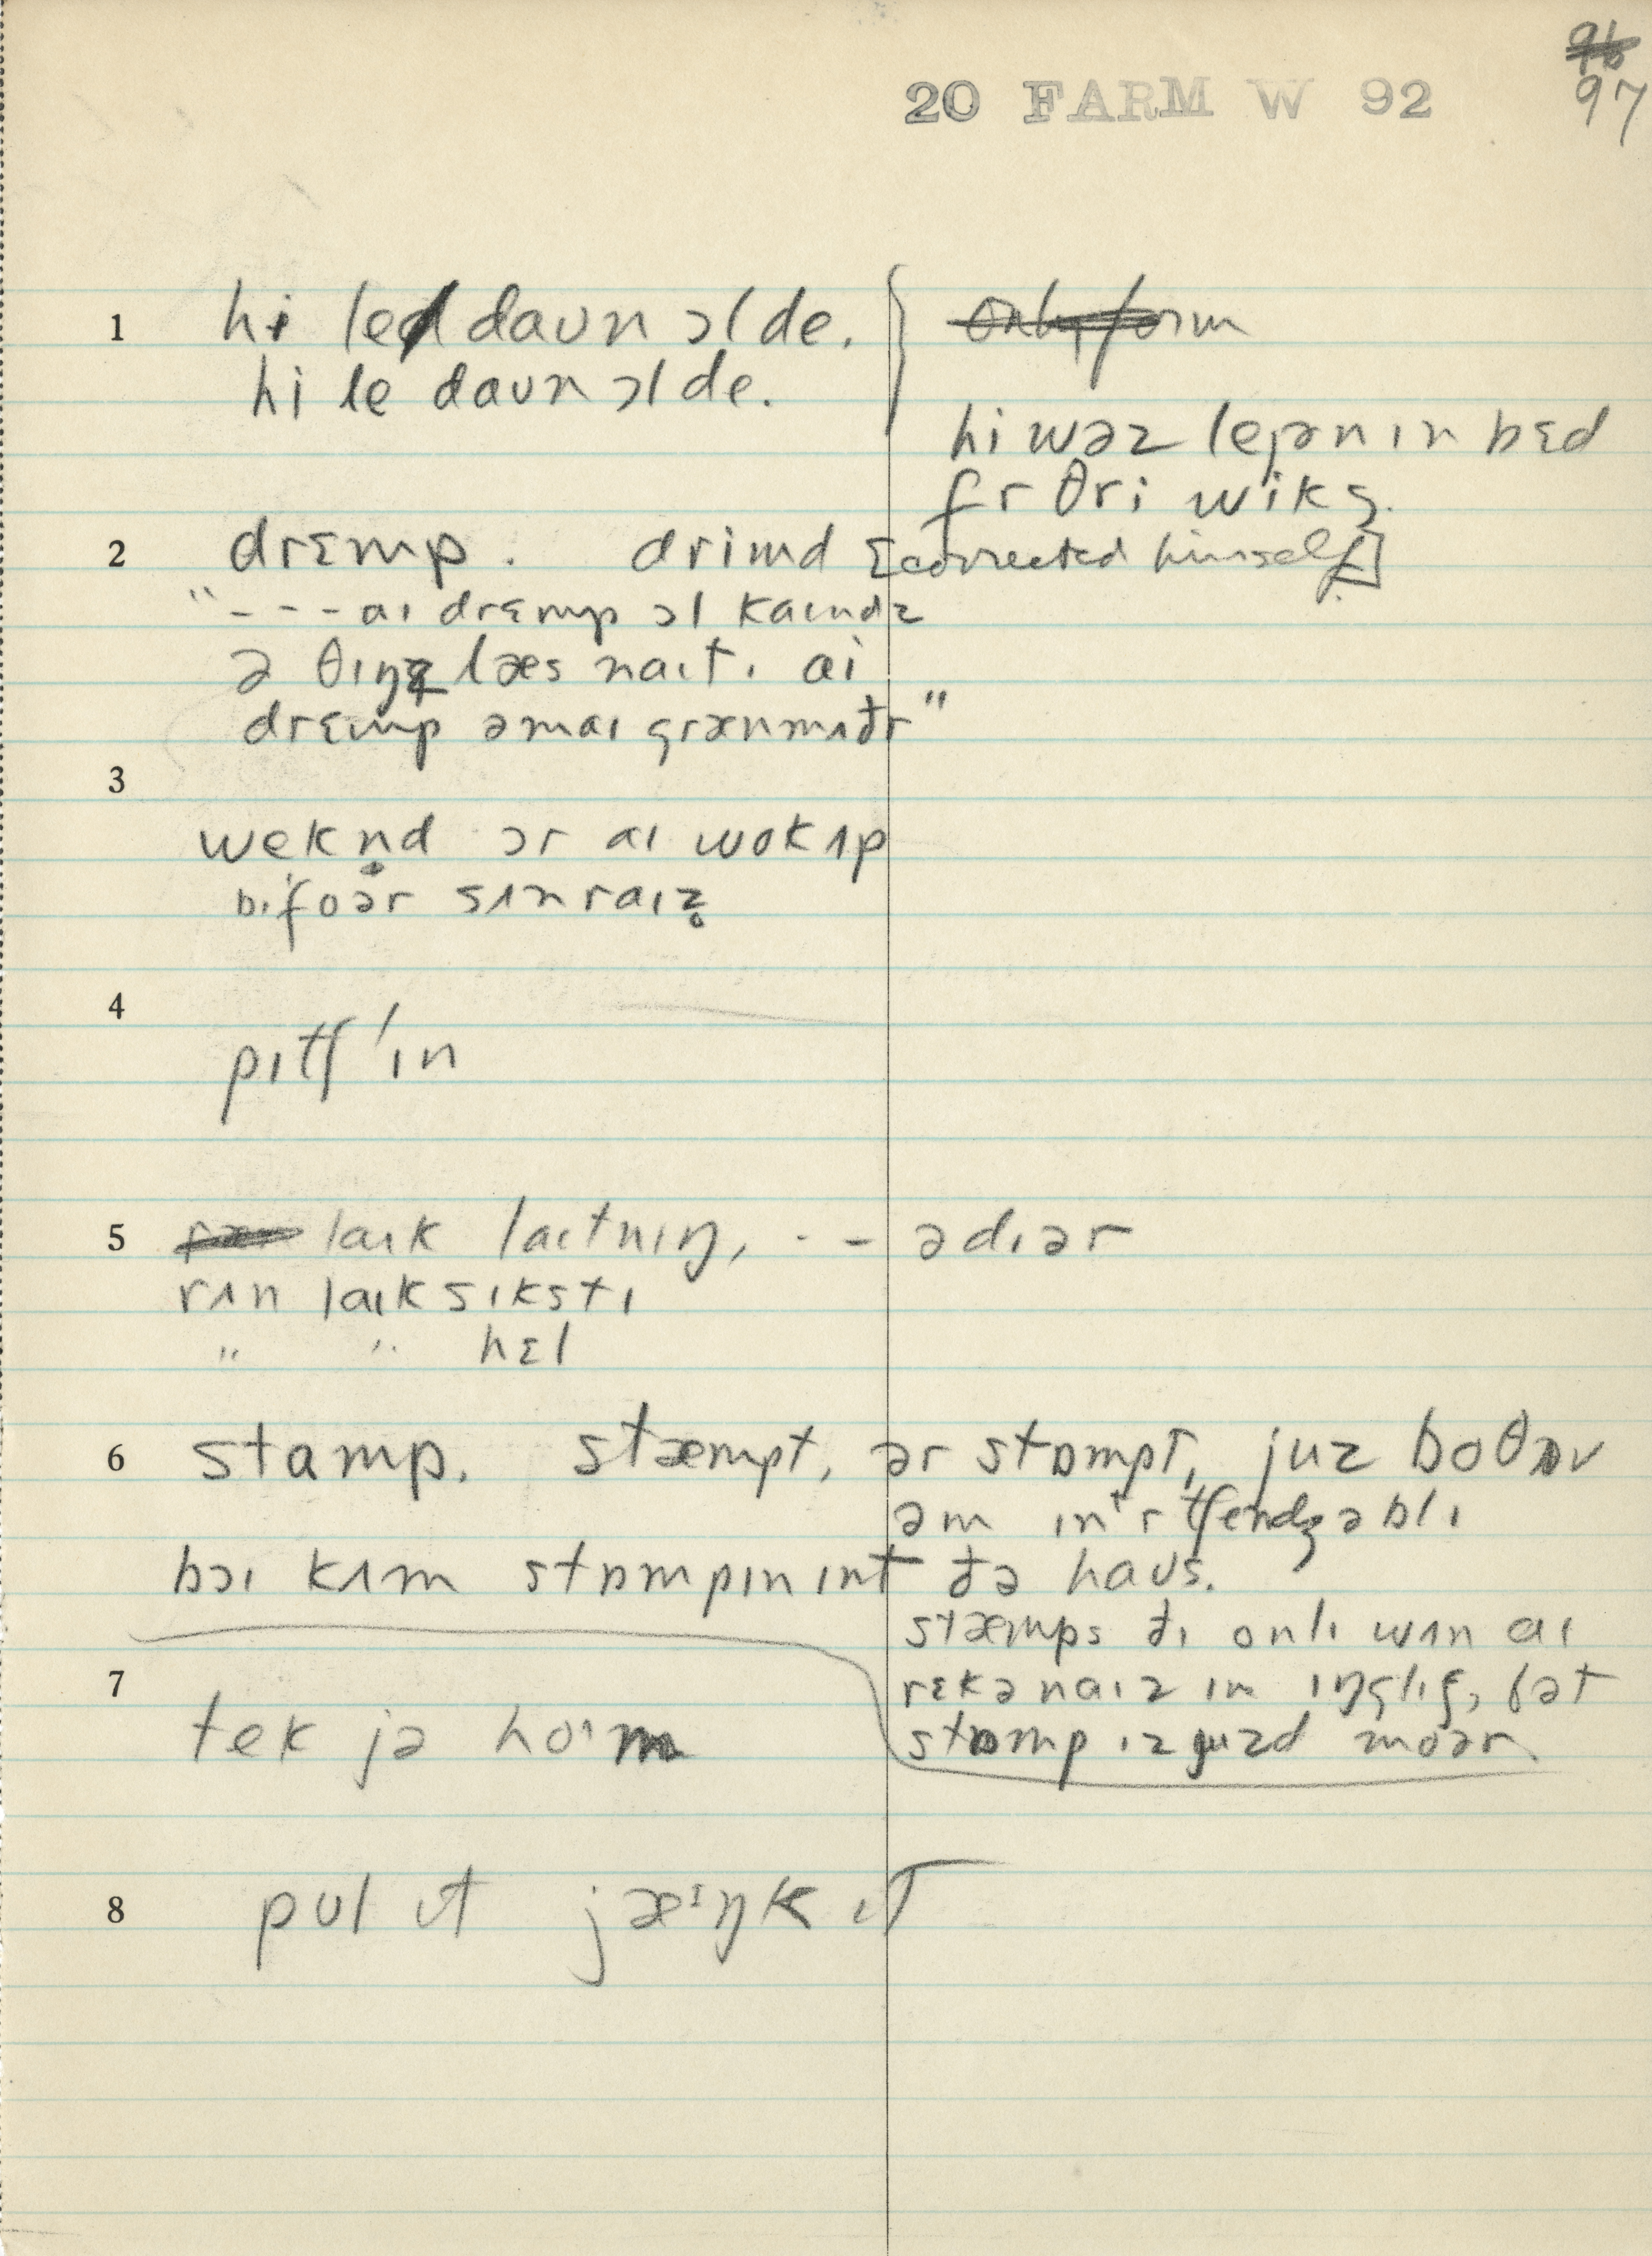 96
97
20 FARM W 92
1 hi led daʊn ɔl de.
hi le daʊn ɔl de.
only form
hi wəz lejən ɪn bɛd
fr θri wiks.
2 drɛmp. drimd [corrected himself]
"---aɪ drɛmp ɔl kaɪndz
ə θɪŋz læs naɪt. ai
drɛmp əmaɪ grænmʌðr"
3
wekn̩d ər aɪ wok ʌp
bɪfoər sʌnraɪz̥
4
pɪtʃ'ɪn
5 laɪk laɪtnɪŋ, --- ə dɪər
rʌn laɪk sɪkstɪ
" " hɛl
6 stamp. stæmpt, ər stɒmpt, juz boθ əv
əm ɪn'rtʃendʒəblɪ
bɔɪ kʌm stɒmpɪn ɪnt ðə haʊs.
stæmps ðɪ onlɪ wʌn aɪ
rɛkənaɪz ɪn ɪŋglɪʃ, bət
stɒmp ɪz juzd moər
7
tek jə ho'm
8 pʊl ɪt jæɪŋk ɪt